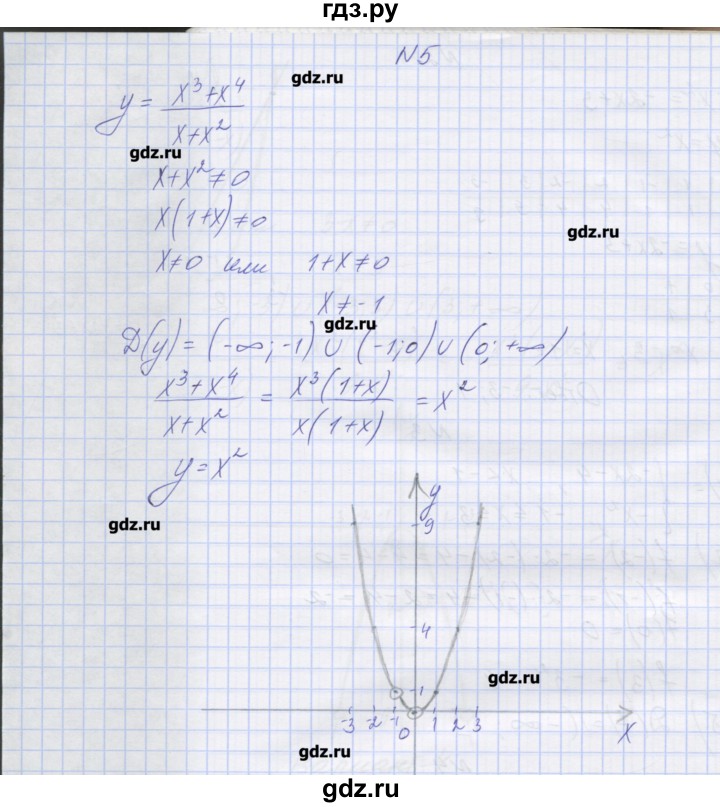 гдз.ру
N5
gdz.ru
y = x³+x⁴ / x+x²
gdz.ru
x+x²≠0
x(1+x)≠0
gdz.ru
x≠0 или 1+x≠0
x≠-1
gdz.ru
D(y) = (-∞; -1) ∪ (-1; 0) ∪ (0; +∞)
x³+x⁴ / x+x² = x³(1+x) / x(1+x) = x²
y = x²
y
gdz.ru
9
4
gdz.ru
1
-3 -2 -1 0 1 2 3 x
gdz.ru
gdz.ru